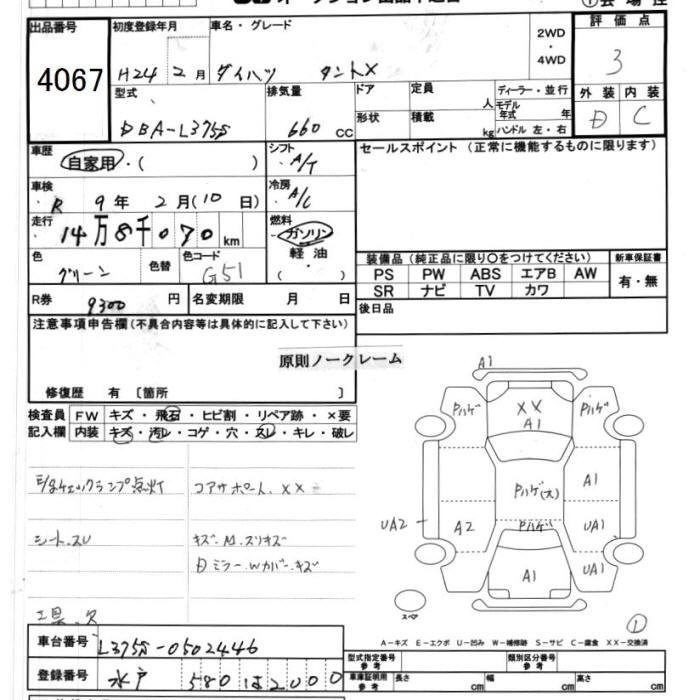 オークション出品申込書
出品番号
4067
初度登録年月
H24年2月
車名・グレード
ダイハツ タントX
2WD
・
4WD
評価点
3
外装 内装
D C
型式
DBA-L375S
排気量
660 CC
ドア
形状
定員 人
積載 kg
ディーラー・並行
モデル年式 年
ハンドル 左・右
車歴
自家用・( )
シフト
A/T
セールスポイント (正常に機能するものに限ります)
車検
R 9年 2月(10日)
冷房
A/C
走行
14万8千070km
燃料
ガソリン
軽油
( )
色
グリーン
色替
色コード
G51
装備品 (純正品に限り○をつけてください)
PS PW ABS エアB AW
SR ナビ TV カワ
新車保証書
有・無
R券 9300 円
名変期限 月 日
後日品
注意事項申告欄(不具合内容等は具体的に記入して下さい)
原則ノークレーム
修復歴 有 〔箇所 〕
検査員記入欄
FW キズ・飛石・ヒビ割・リペア跡・×要
内装 キズ・汚レ・コゲ・穴・スレ・キレ・破レ
E/gチェックランプ点灯
コアサポート.XX
シート.スレ
キズ.M.スリキズ
Dミラー.Wカバー.キズ
工具.欠
A1
Pハゲ
XX
A1
Pハゲ
Pハゲ(大)
A1
UA2
A2
Pハゲ
UA1
A1
UA1
スペア
1
A-キズ E-エクボ U-凹み W-補修跡 S-サビ C-腐食 XX-交換済
車台番号
L375S-0502446
登録番号
水戸 580 は 2000
型式指定番号
参考
類別区分番号
参考
車庫証明用
参考
長さ cm
幅 cm
高さ cm